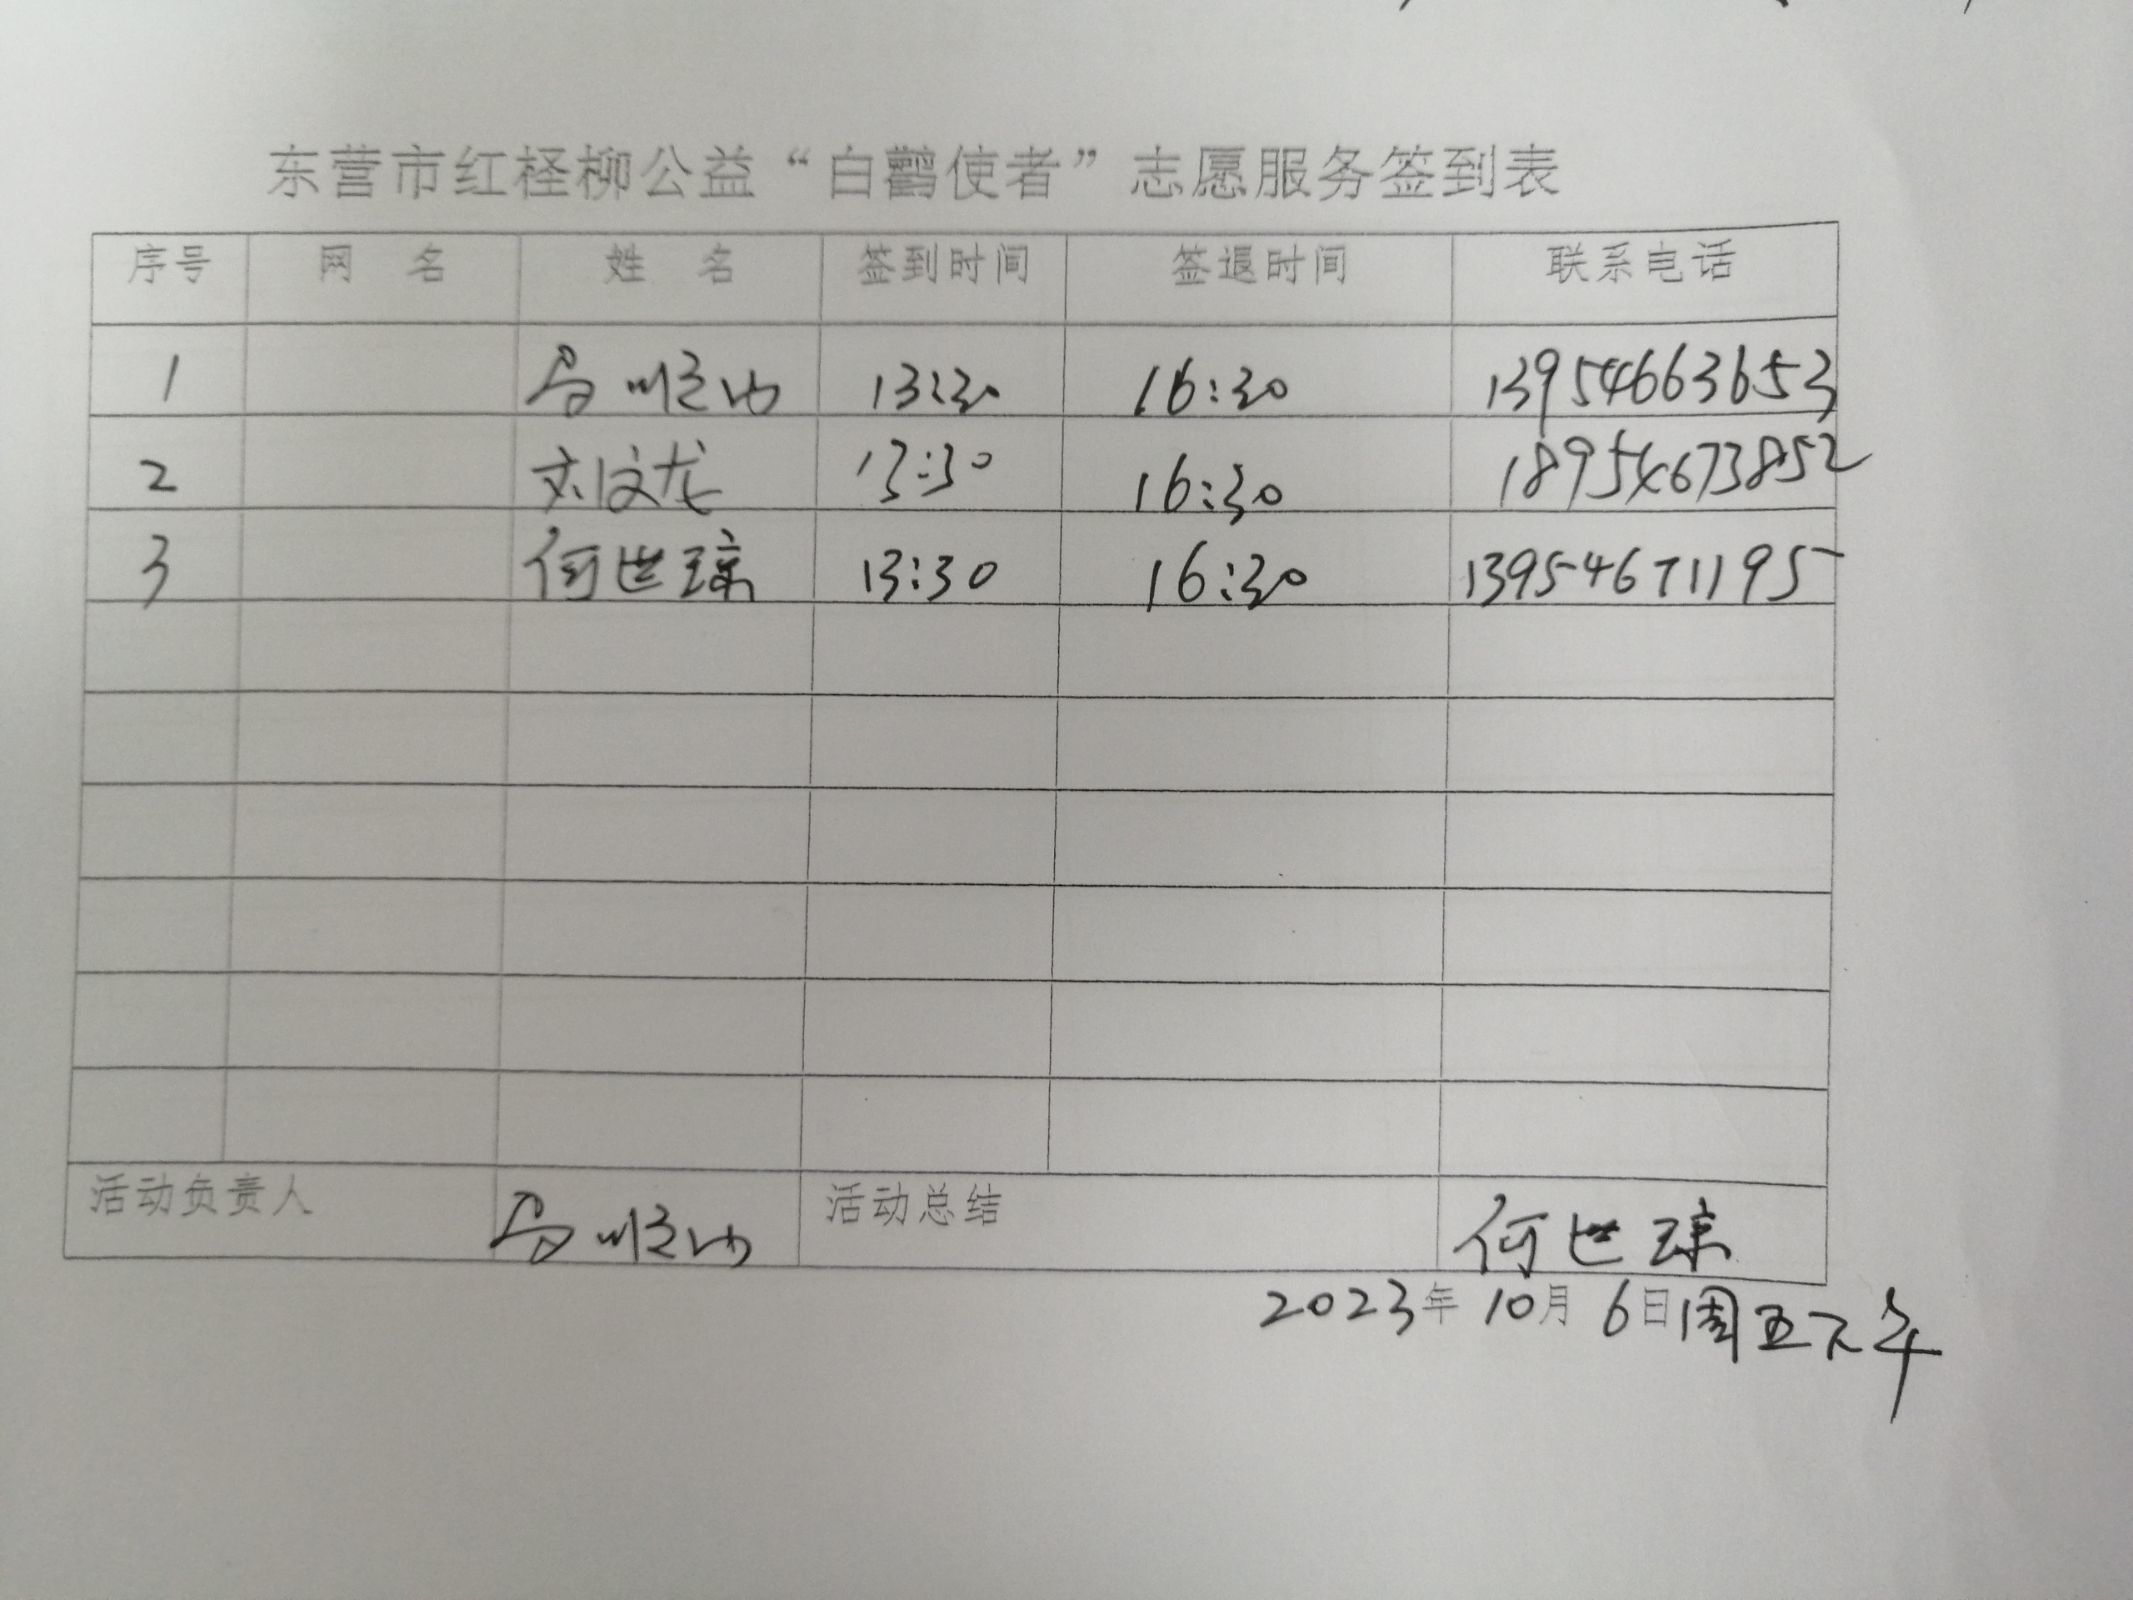 东营市红柽柳公益“白鹳使者”志愿服务签到表
序号 网 名 姓 名 签到时间 签退时间 联系电话
1 13:30 16:30 13954663653
2 刘文龙 13:30 16:30 18954673852
3 何世琼 13:30 16:30 13954671195
活动负责人 活动总结 何世琼
2023年 10月 6日周五下午